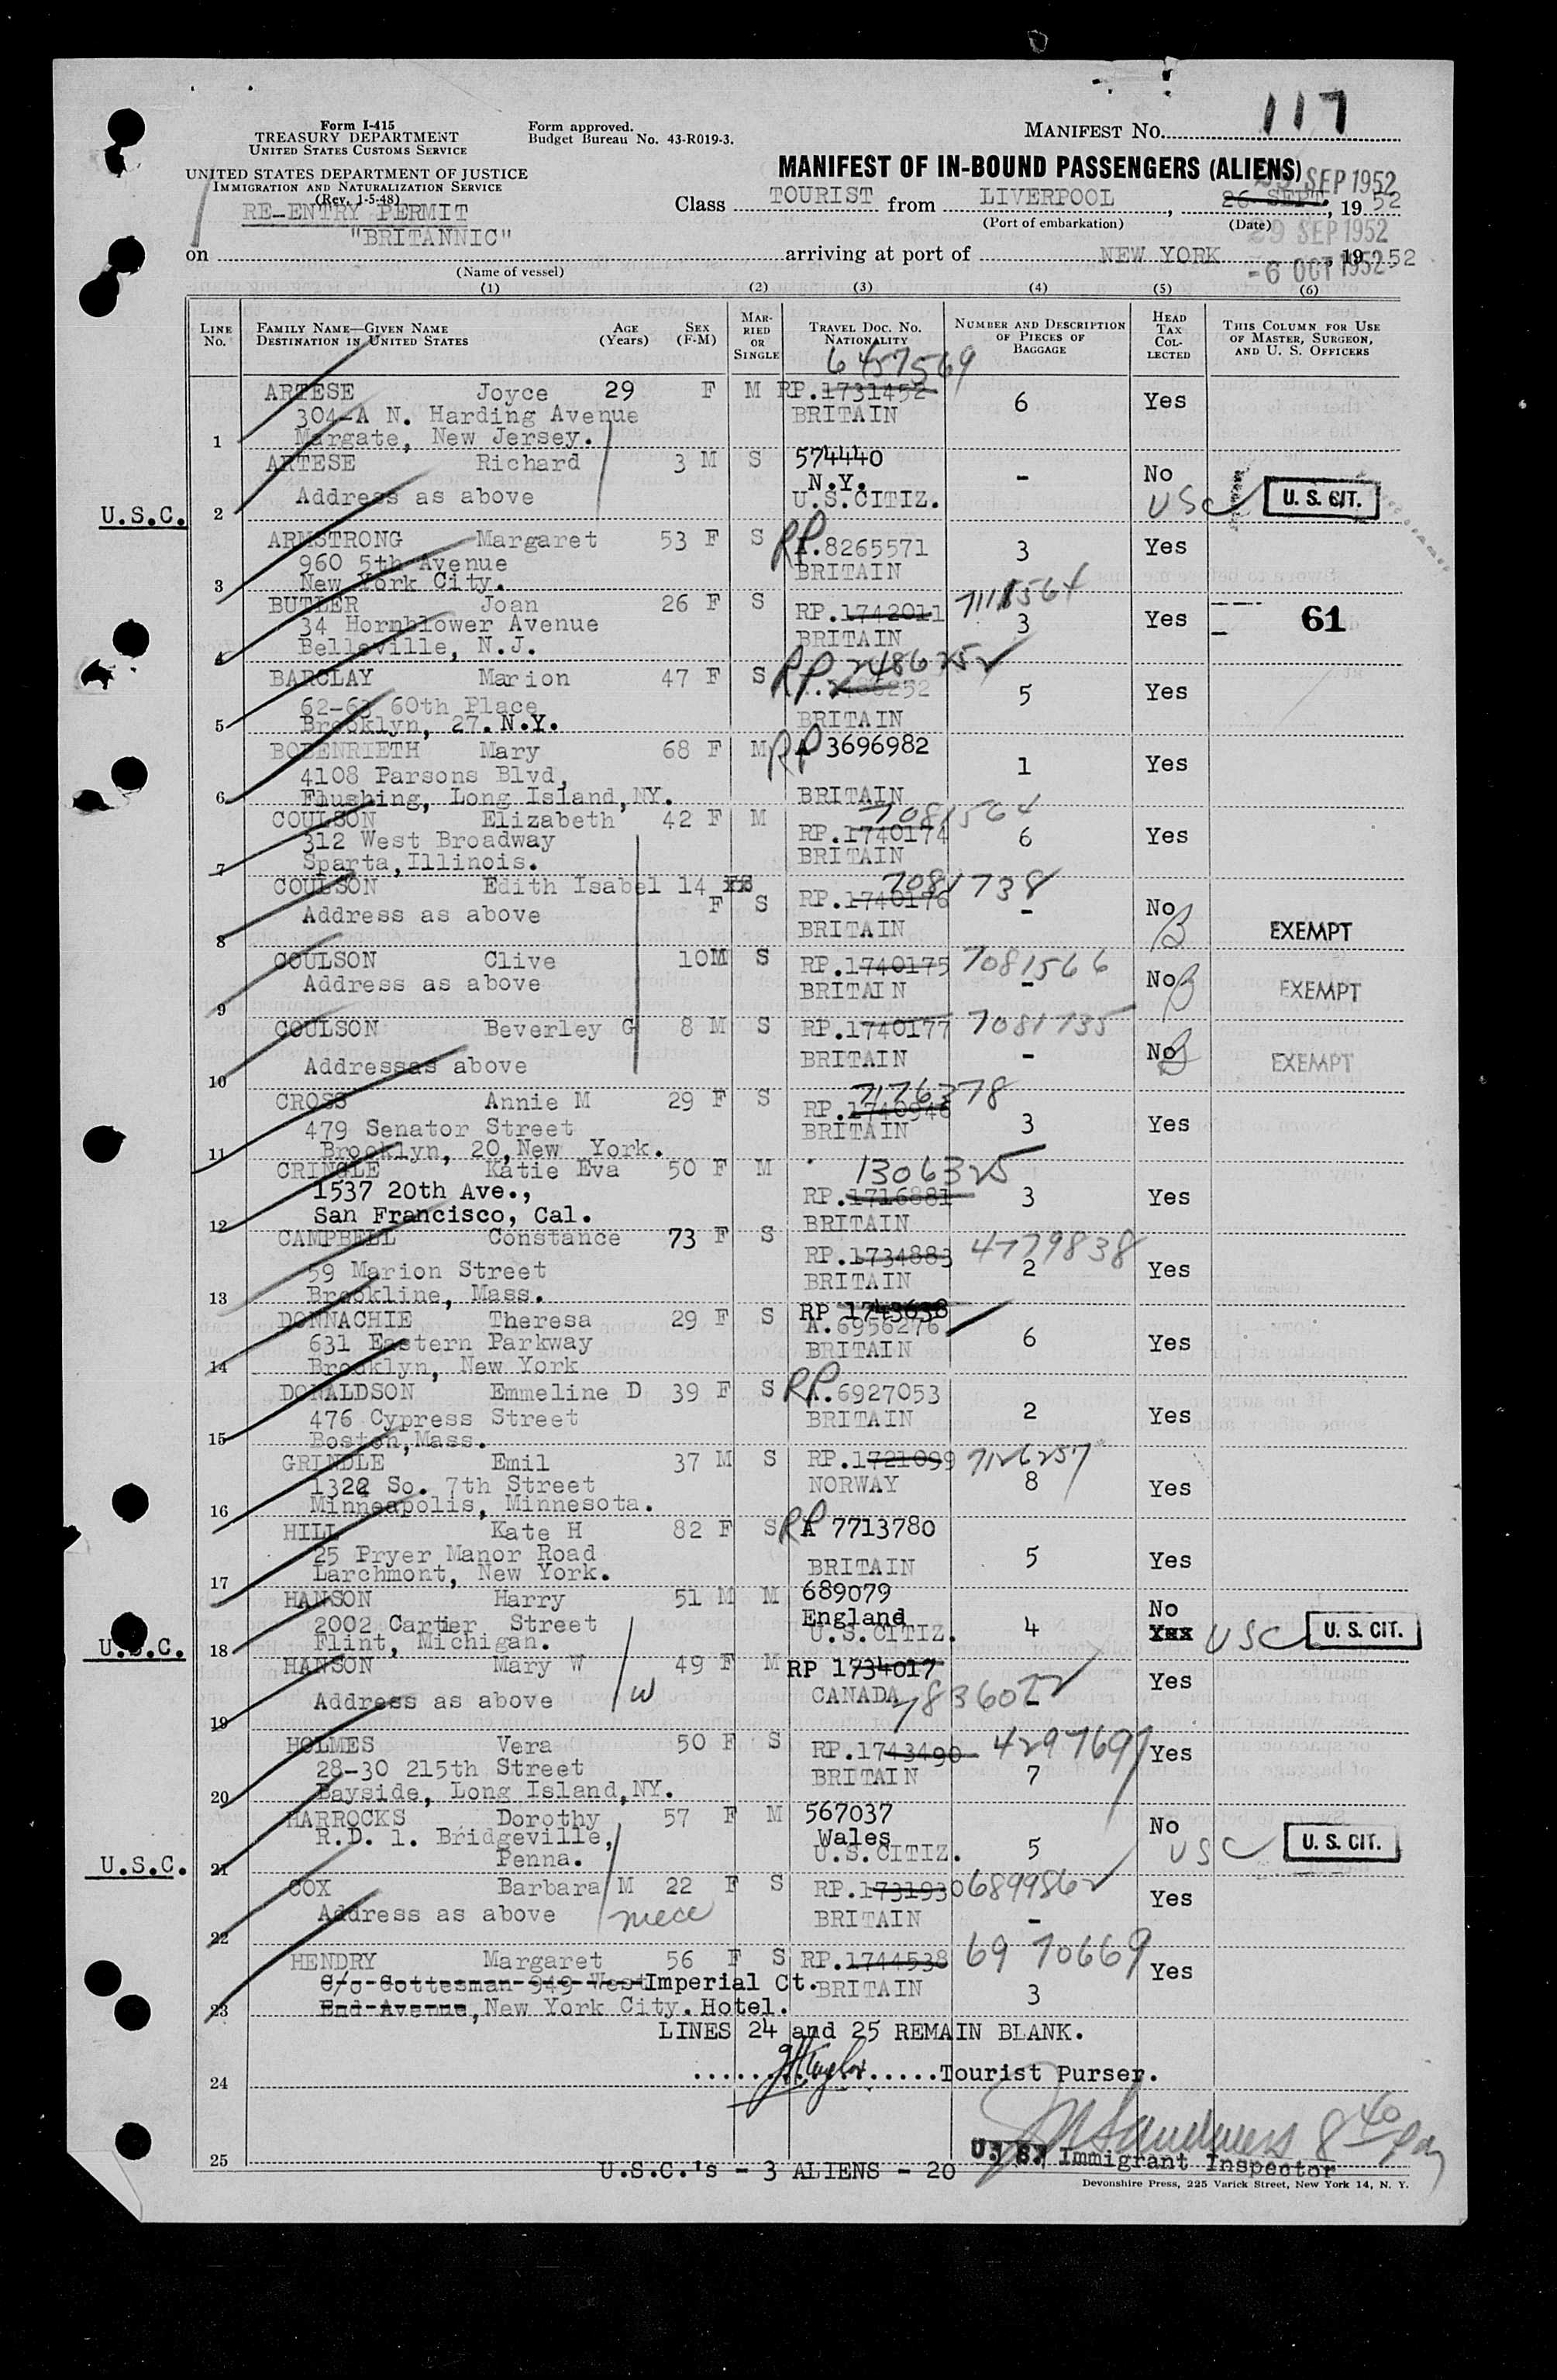 117
Form I-415
TREASURY DEPARTMENT
UNITED STATES CUSTOMS SERVICE
Form approved.
Budget Bureau No. 43-R019-3.
MANIFEST No.
UNITED STATES DEPARTMENT OF JUSTICE
IMMIGRATION AND NATURALIZATION SERVICE
(Rev. 1-5-48)
MANIFEST OF IN-BOUND PASSENGERS (ALIENS)
SEP 1952
RE-ENTRY PERMIT
Class TOURIST from LIVERPOOL, 26 SEPT, 1952
(Port of embarkation) (Date)
29 SEP 1952
on "BRITANNIC" arriving at port of NEW YORK, 1952
-6 OCT 1952
(Name of vessel)
(1) (2) (3) (4) (5) (6)
LINE No.
FAMILY NAME—GIVEN NAME
DESTINATION IN UNITED STATES
AGE (Years)
SEX (F-M)
MARRIED OR SINGLE
TRAVEL DOC. NO. NATIONALITY
NUMBER AND DESCRIPTION OF PIECES OF BAGGAGE
HEAD TAX COLLECTED
THIS COLUMN FOR USE OF MASTER, SURGEON, AND U. S. OFFICERS
6457569
ARTESE Joyce 29 F M RP.1731452 6 Yes
304-A N. Harding Avenue BRITAIN
1 Margate, New Jersey.
ARTESE Richard 3 M S 574440 - No
N.Y.
Address as above U.S.CITIZ. USC U. S. CIT.
U.S.C. 2
ARMSTRONG Margaret 53 F S RP A.8265571 3 Yes
960 5th Avenue BRITAIN
3 New York City.
BUTLER Joan 26 F S RP.1742011 7111564 3 Yes 61
34 Hornblower Avenue BRITAIN
4 Belleville, N.J.
BARCLAY Marion 47 F S RP 2486252 5 Yes
62-63 60th Place BRITAIN
5 Brooklyn, 27. N.Y.
BODENRIETH Mary 68 F M RP A 3696982 1 Yes
4108 Parsons Blvd,
6 Flushing, Long Island,NY. BRITAIN
COULSON Elizabeth 42 F M 7081564
312 West Broadway RP.1740174 6 Yes
7 Sparta,Illinois. BRITAIN
COULSON Edith Isabel 14 7081738
F S RP.1740176 - No
8 Address as above BRITAIN B EXEMPT
COULSON Clive 10M S RP.1740175 7081566 - No B
9 Address as above BRITAIN EXEMPT
COULSON Beverley G 8 M S RP.1740177 7081735 - No B
10 Address as above BRITAIN EXEMPT
CROSS Annie M 29 F S 7176378
RP.1740946 3 Yes
479 Senator Street BRITAIN
11 Brooklyn, 20,New York.
CRINGLE Katie Eva 50 F M 1306325
1537 20th Ave., RP.1716881 3 Yes
12 San Francisco, Cal. BRITAIN
CAMPBELL Constance 73 F S RP.1734883 4779838 2 Yes
59 Marion Street BRITAIN
13 Brookline, Mass.
DONNACHIE Theresa 29 F S RP 1743638
A.6956276 6 Yes
631 Eastern Parkway BRITAIN
14 Brooklyn, New York
DONALDSON Emmeline D 39 F S RP A.6927053 2 Yes
476 Cypress Street BRITAIN
15 Boston,Mass.
GRINDLE Emil 37 M S RP.1721099 7126257 8 Yes
1322 So. 7th Street NORWAY
16 Minneapolis, Minnesota.
HILL Kate H 82 F S RP A 7713780 5 Yes
25 Pryer Manor Road BRITAIN
17 Larchmont, New York.
HANSON Harry 51 M M 689079 No
2002 Cartier Street England 4 Yes USC U. S. CIT.
U.S.C. 18 Flint, Michigan. U.S.CITIZ.
HANSON Mary W 49 F M RP 1734017 Yes
19 Address as above W CANADA 7836022 -
HOLMES Vera 50 F S RP.1743490 4297697 Yes
28-30 215th Street BRITAIN 7
20 Bayside, Long Island,NY.
HARROCKS Dorothy 57 F M 567037 No
R.D. 1. Bridgeville, Wales
U.S.C. 21 Penna. U.S.CITIZ. 5 USC U. S. CIT.
COX Barbara M 22 F S RP.1731930 6899862 Yes
22 Address as above niece BRITAIN -
HENDRY Margaret 56 F S RP.1744538 6970669 Yes
C/o Gottesman-949-West Imperial Ct. BRITAIN 3
23 End-Avenue,New York City. Hotel.
LINES 24 and 25 REMAIN BLANK.
24 Tourist Purser.
8 40 pm
25 U. S. Immigrant Inspector
U.S.C.'s - 3 ALIENS - 20
Devonshire Press, 225 Varick Street, New York 14, N. Y.